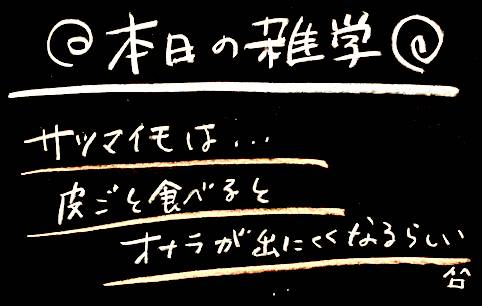 本日の雑学
サツマイモは...
皮ごと食べると
オナラが出にくくなるらしい